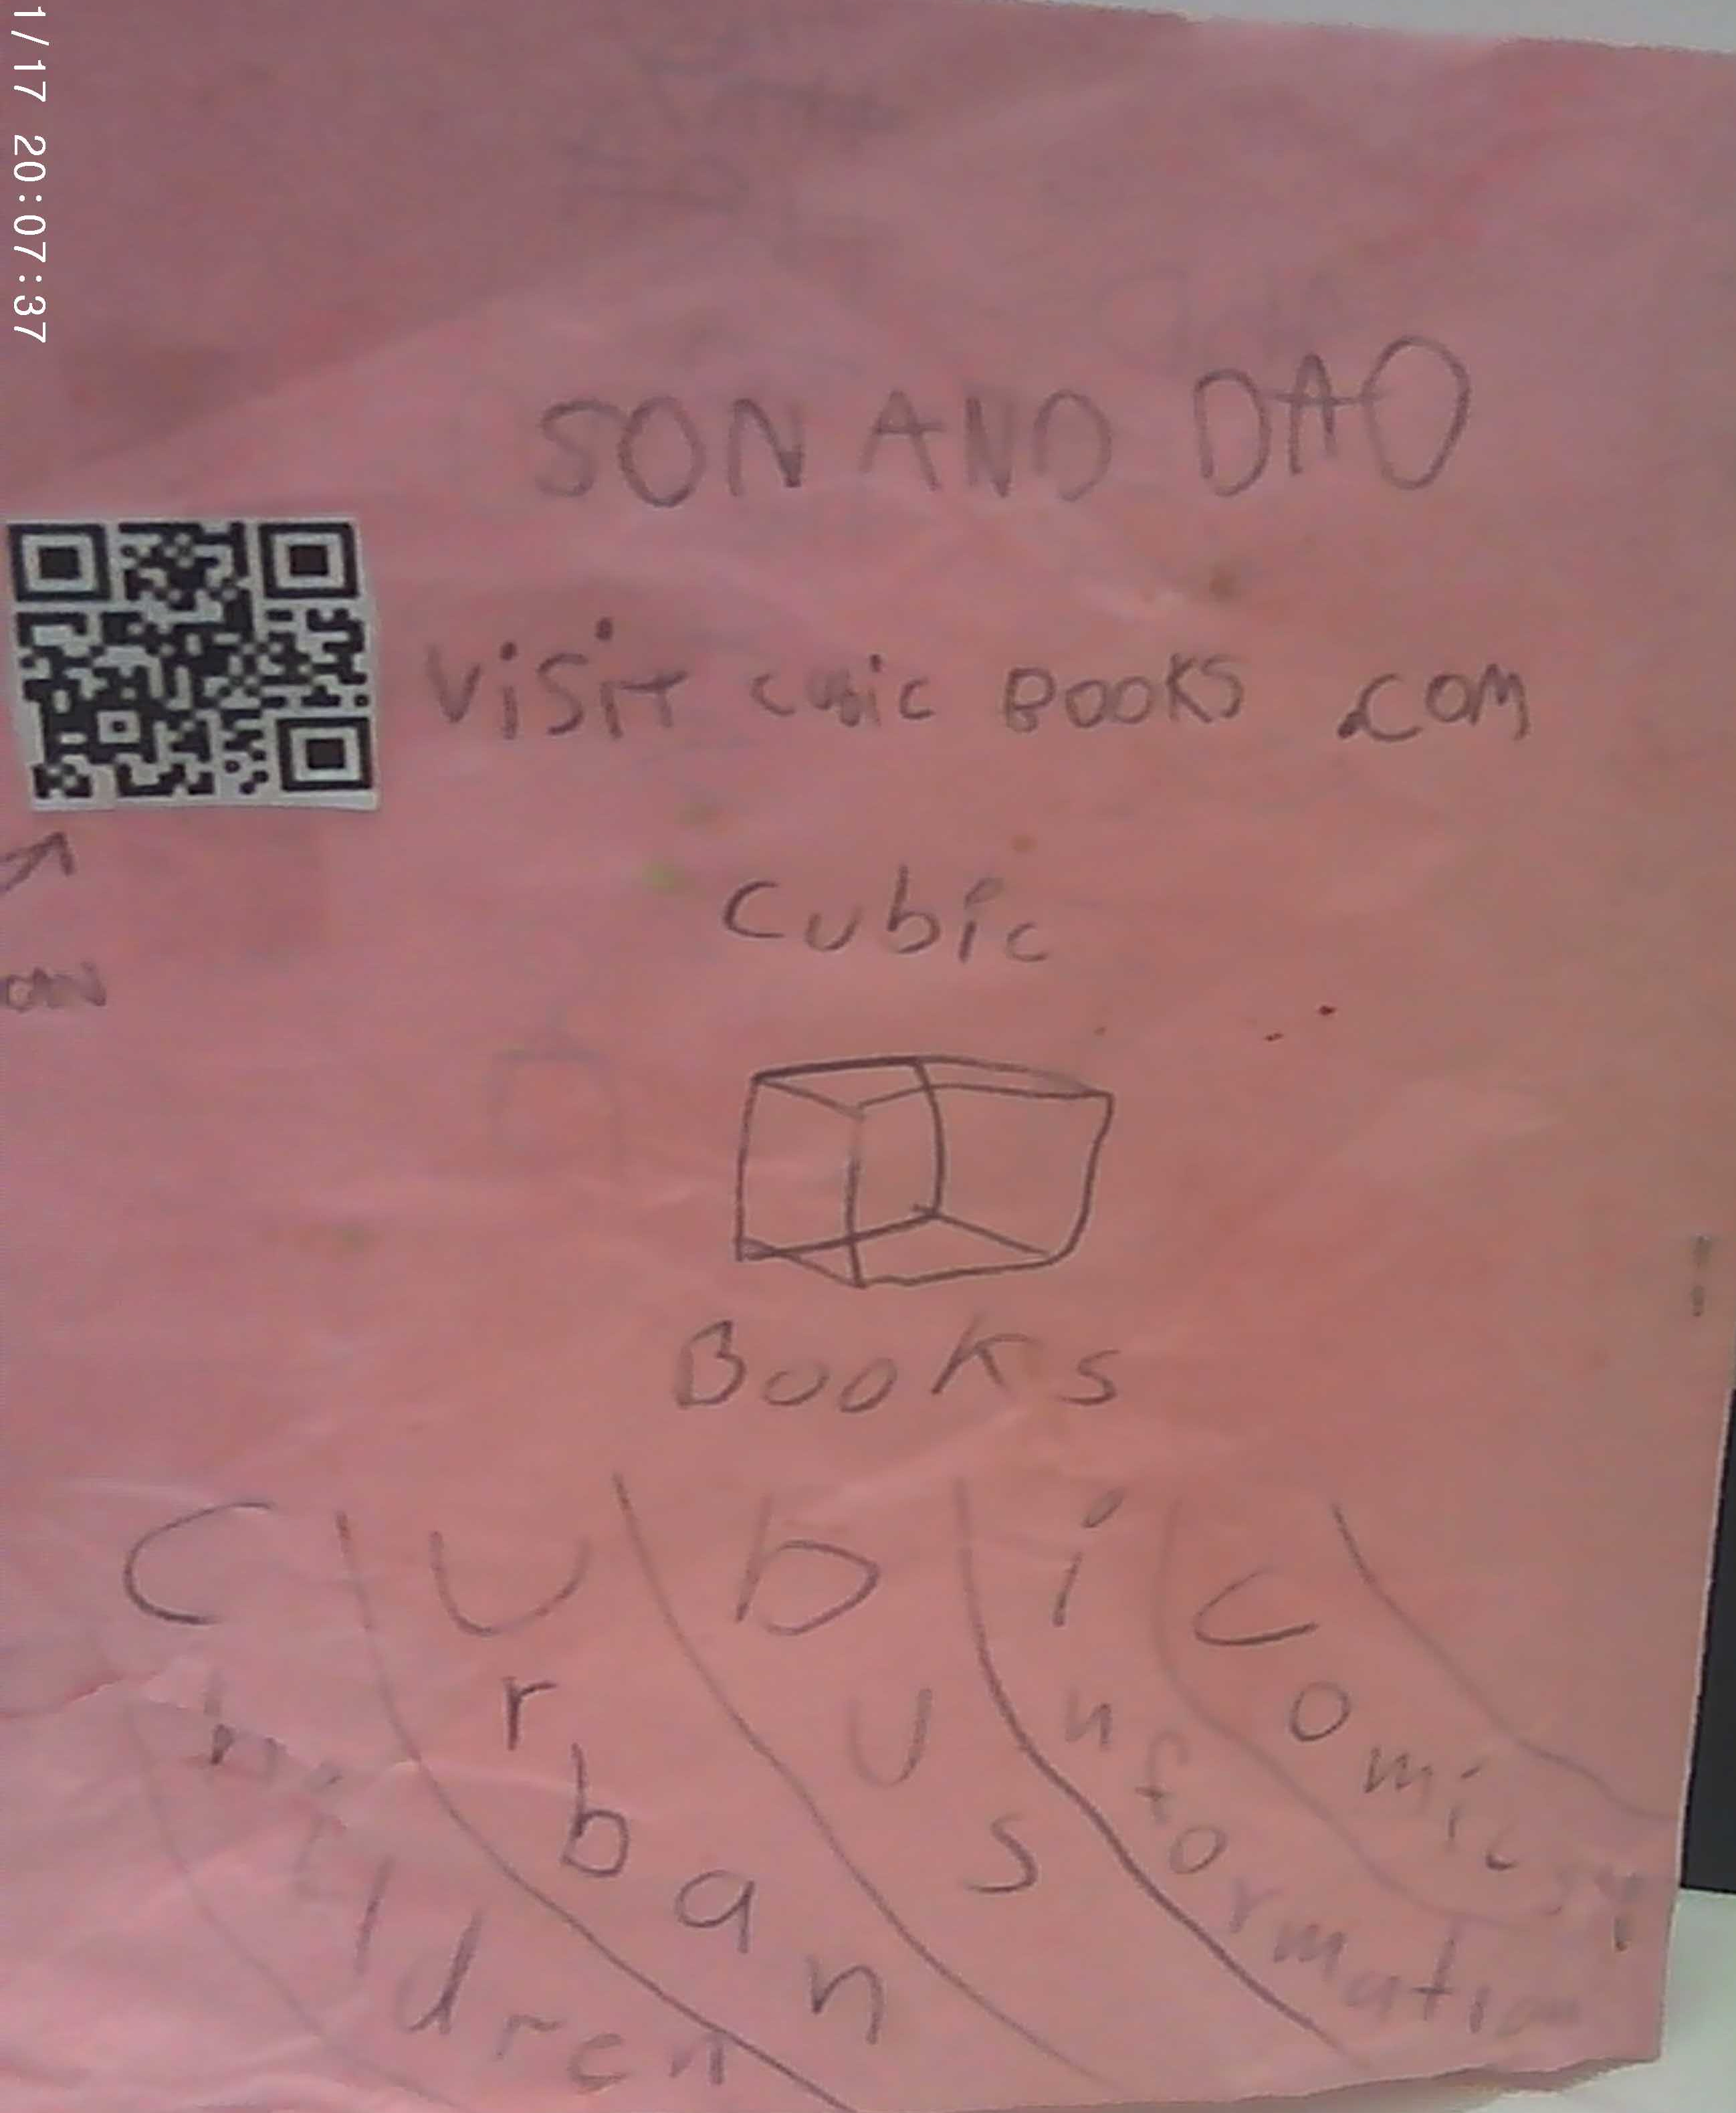 1/17 20:07:37
SON AND DAO
VISIT CUBIC BOOKS .COM
Cubic
Books
C U b i c
Children
Urban
bus
information
comics